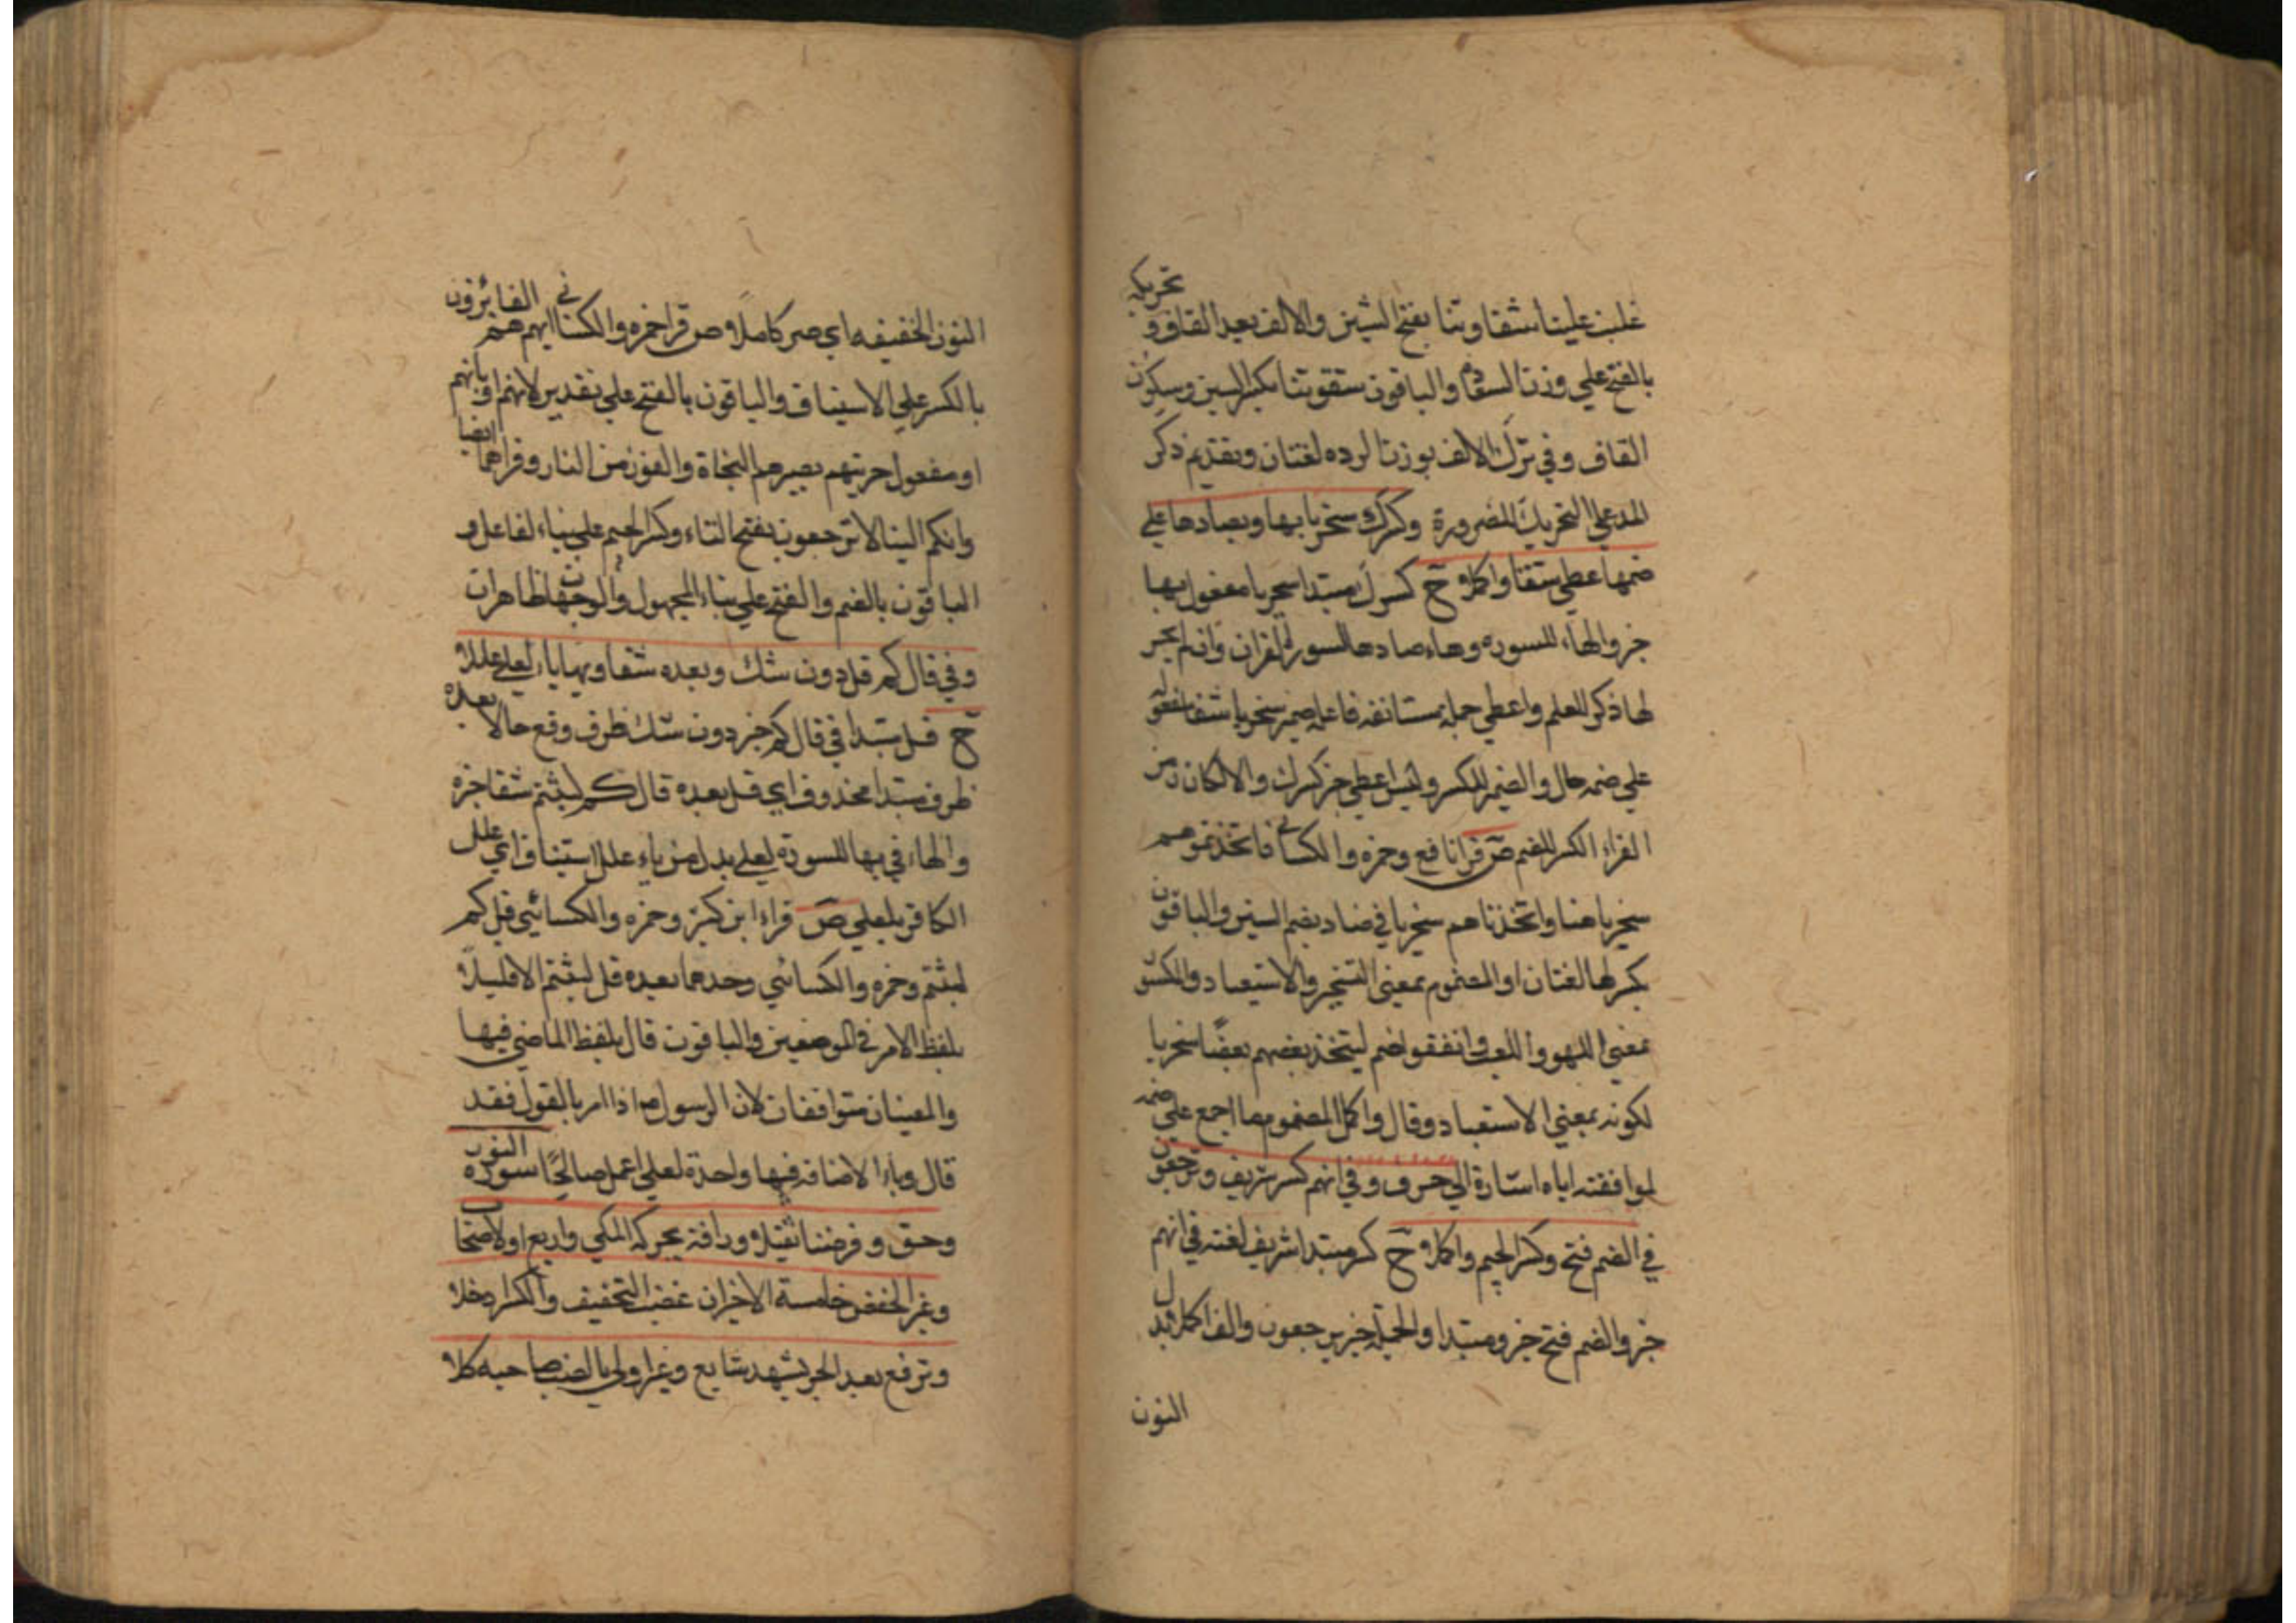 غلبت علينا شقاوتنا بفتح الشين والالف بعد القاف و تحريكه
بالفتح علي وزن السعاده والباقون شقوتنا بكسر الشين وسكون
القاف وفي ترك الالف بوزن الرده لغتان وتقديم ذكر
المد علي التحريك للضرورة وكسرك سخريا بها وبصادها علي
ضمها اعطي شفا واكملا ح كسرك مبتدا سخريا مفعول بها
خبر والهاء للسوره وهاء صادها لسور القران وان لم يجر
لها ذكر للعلم واعطي جمله مستانفه فاعله ضمير سخريا شفا مفعوله
علي ضمه حال والضمير للكسر وليس اعطي خبر كسرك والا لكان من
القراء الكسر للضم ص قرا نافع وحمزه والكسائي فاتخذتموهم
سخريا هنا واتخذناهم سخريا في ضاد بضم السين والباقون
بكسرها لغتان او المضموم بمعني التسخير والاستعباد والمكسور
بمعني اللهو واللعب واتفقوا ضم ليتخذ بعضهم بعضًا سخريا
لكونه بمعني الاستعباد وقال واكمل المضموم مما اجمع علي ضمه
لموافقته اياه اشارة الي حرف وفي انهم كسر شريف وترجعون
في الضم فتح وكسر الجيم واكملا ح كسر مبتدا شريف لغته في انهم
خبر والضم فتح خبر ومبتدا والجملة خبر يرجعون والف اكملا بدل
النون
النون الخفيفه اي صر كاملا ص قرا حمزه والكسائي انهم هم الفائزون
بالكسر علي الاستيناف والباقون بالفتح علي تقدير لانهم او بانهم
او مفعول جزيتهم بصبرهم النجاة والفوز من النار وقراهما ايضا
وانكم الينا لا ترجعون بفتح التاء وكسر الجيم علي بناء الفاعل و
الباقون بالضم والفتح علي بناء المجهول والوجهان ظاهران
وفي قال كم قل دون شك وبعده شفا وبها ياء لعلي عللا
ح قل مبتدا في قال كم خبر دون شك ظرف وقع حالا بعده
ظرف مبتدا محذوف اي قل بعده قال كم لبثتم شفا خبره
والهاء في بها للسورة لعلي بدل من ياء علل استيناف اي علل
الكافر بلعلي ص قراء ابن كثير وحمزه والكسائي قل كم
لبثتم وحمزه والكسائي وحدهما بعده قل لبثتم الا قليلًا
بلفظ الامر في الموضعين والباقون قال بلفظ الماضي فيها
والمعنيان متوافقان لان الرسول ص اذا امر بالقول فقد
قال وياء الاضافه فيها واحدة لعلي اعمل صالحًا سورة النور
وحق وفرضنا ثقيلا ورافة يحركه المكي واربع اولا صحاب
وغير الحفص خامسة الاخير ان غضب التخفيف والكسر ادخلا
وترفع بعد الجر يشهد شايع وغير اولي بالنصب صاحبه كلا